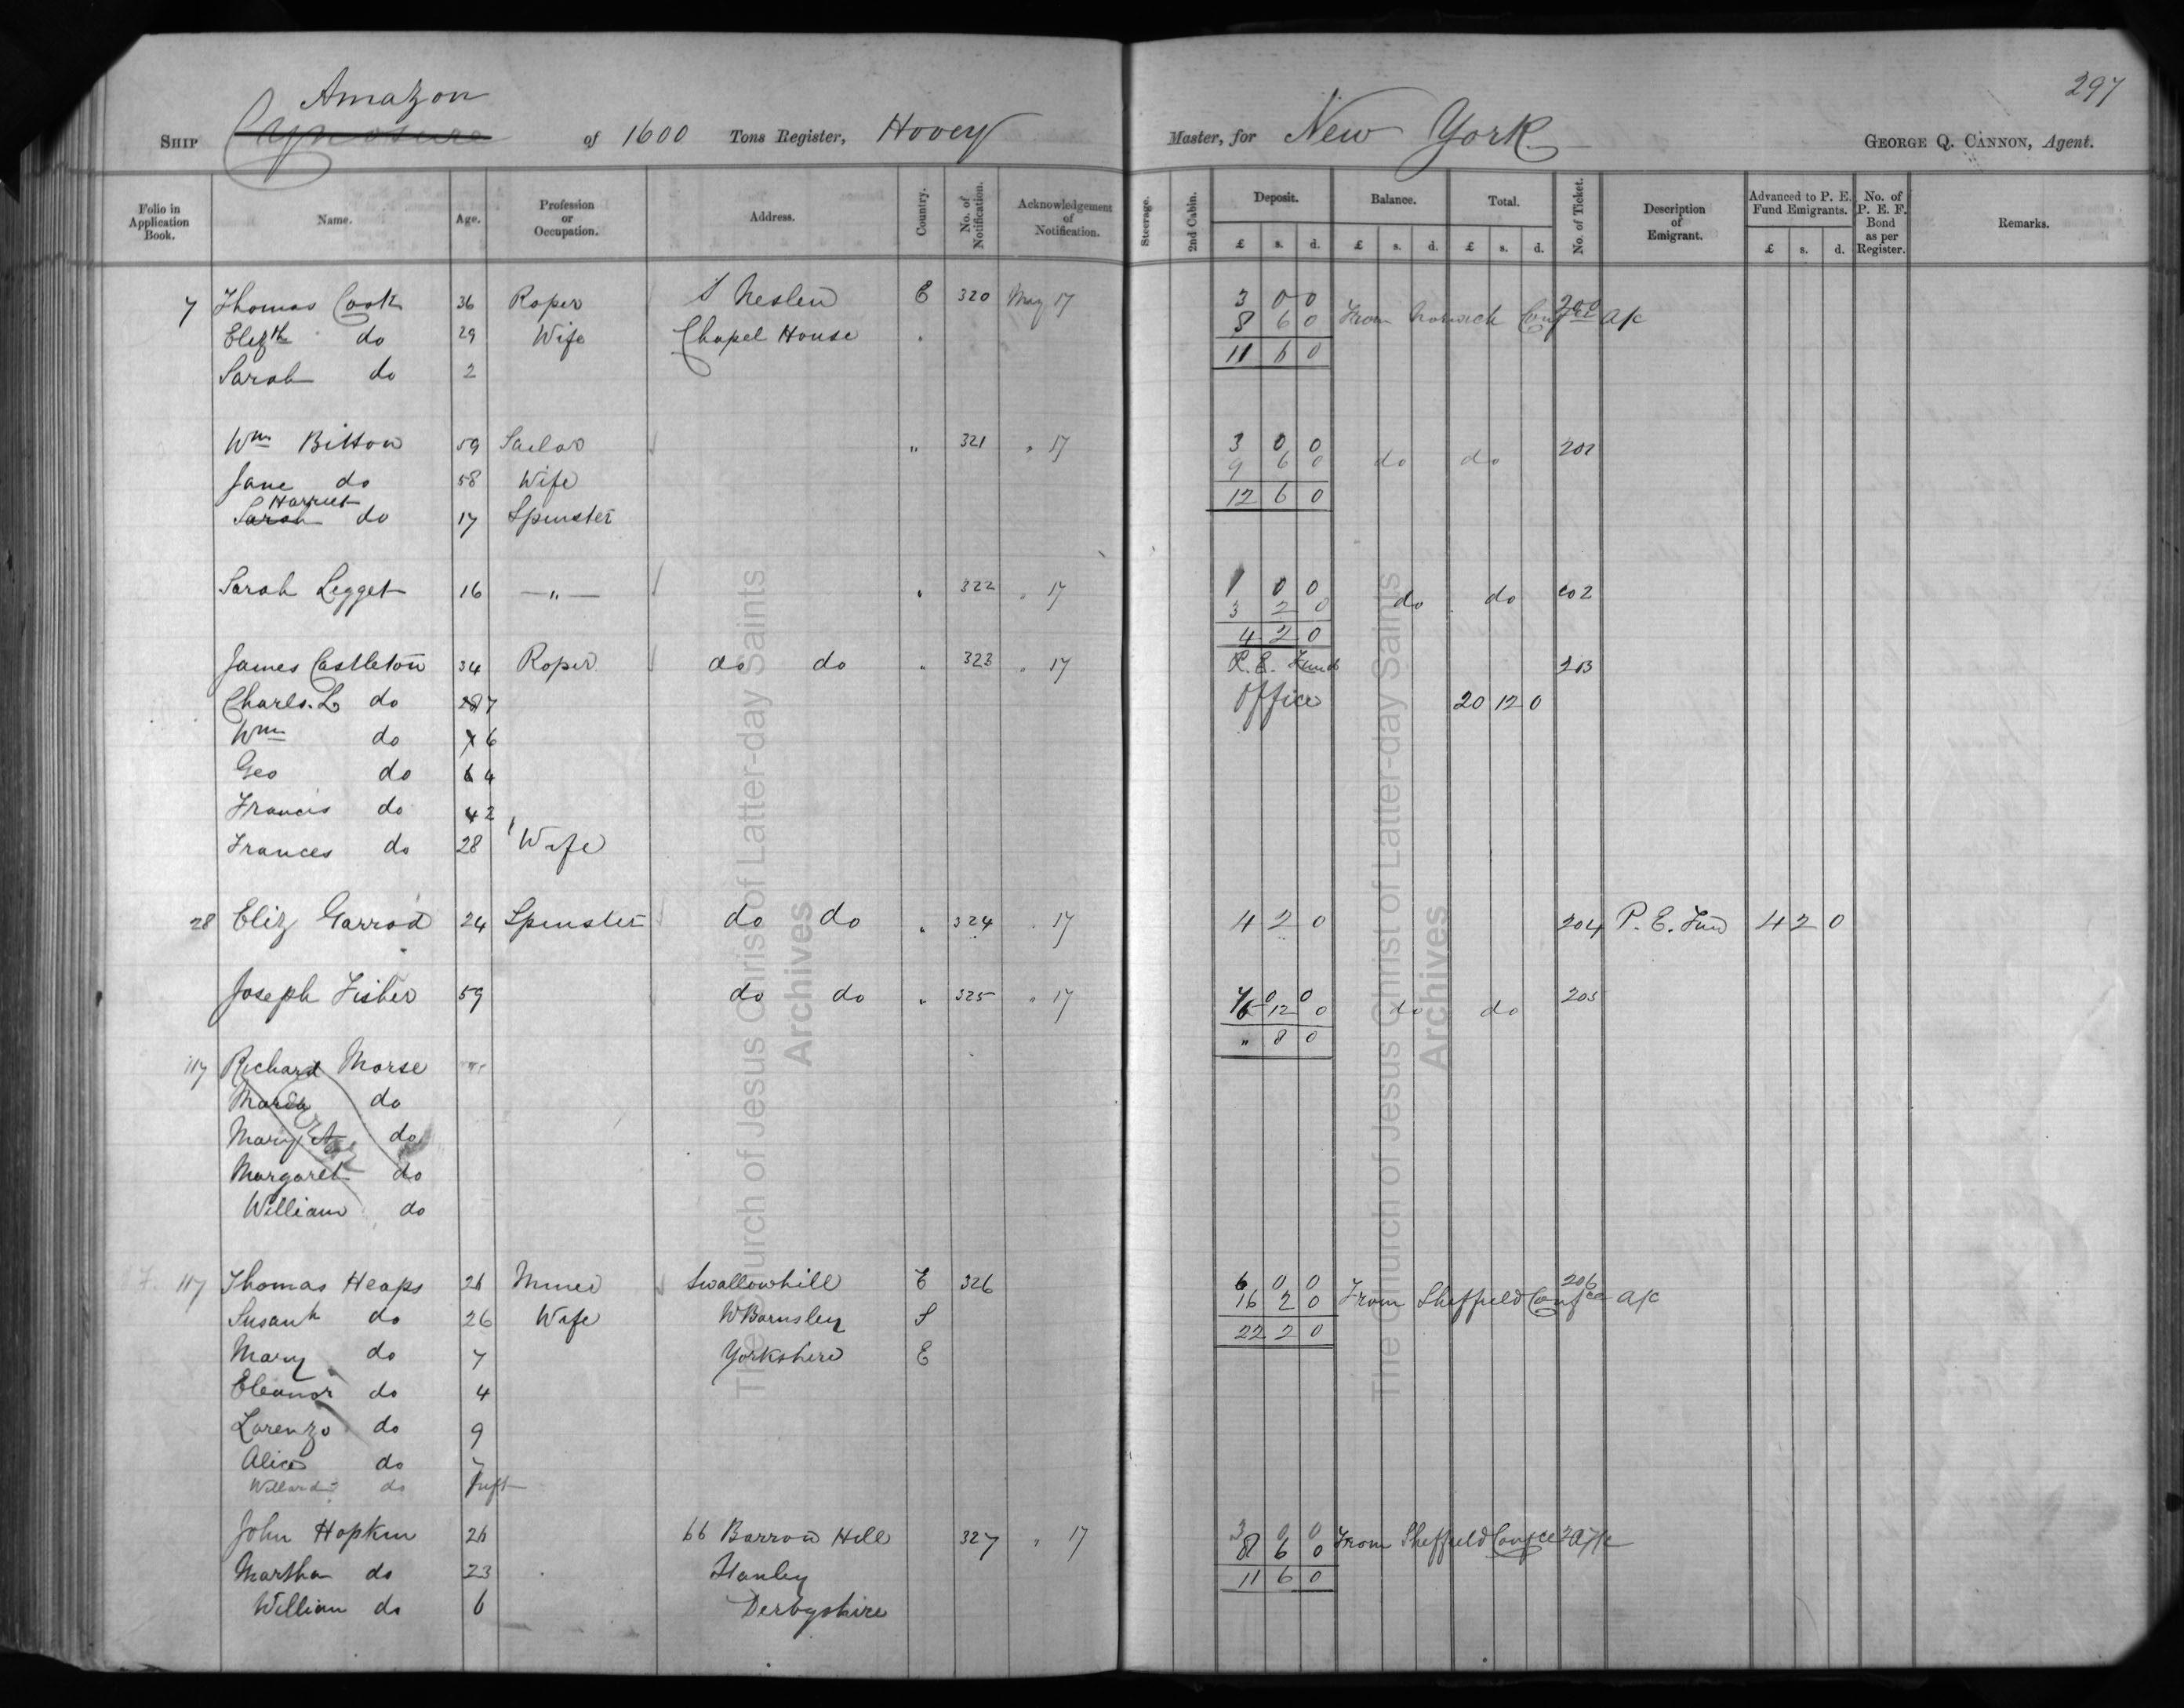 297
Amazon
SHIP Cynosure of 1600 Tons Register, Hovey Master, for New York GEORGE Q. CANNON, Agent.
Folio in Application Book. Name. Age. Profession or Occupation. Address. Country. No. of Notification. Acknowledgement of Notification. Steerage. 2nd Cabin. Deposit. £ s. d. Balance. £ s. d. Total. £ s. d. No. of Ticket. Description of Emigrant. Advanced to P. E. Fund Emigrants. £ s. d. No. of P. E. F. Bond as per Register. Remarks.
7 Thomas Cook 36 Roper S Neslen E 320 May 17 3 0 0 200
8 6 0 From Norwich Confce a/c
Elizth do 29 Wife Chapel House 11 6 0
Sarah do 2
Wm Bitton 59 Sailor " 321 " 17 3 0 0 201
9 6 0 do do
Jane do 58 Wife 12 6 0
Harriet
Sarah do 17 Spinster
Sarah Legget 16 — " — " 322 " 17 1 0 0 202
3 2 0 do do
4 2 0
James Castleton 34 Roper do do " 323 " 17 P. E. Fund 203
Charls. L do 7 Office 20 12 0
Wm do 6
Geo do 4
Francis do 2
Frances do 28 Wife
28 Eliz Garrod 24 Spinster do do " 324 " 17 4 2 0 204 P. E. Fund 4 2 0
Joseph Fisher 59 do do " 325 " 17 0 0 205
12 0 do do
" 8 0
117 Richard Morse
Maria do
Mary A do
Margaret do
William do
117 Thomas Heaps 26 Miner Swallowhill E 326 6 0 0 206
16 2 0 From Sheffield Confce a/c
Susanh do 26 Wife W Barnsley S 22 2 0
Mary do 7 Yorkshire E
Eleanor do 4
Lorenzo do 9
Alice do
Willard do Inft
John Hopkin 26 66 Barrow Hill 327 " 17 3 0 0
8 6 0 From Sheffield Confce a/c
Martha do 23 Stanley 11 6 0
William do 6 Derbyshire
The Church of Jesus Christ of Latter-day Saints
Archives
The Church of Jesus Christ of Latter-day Saints
Archives